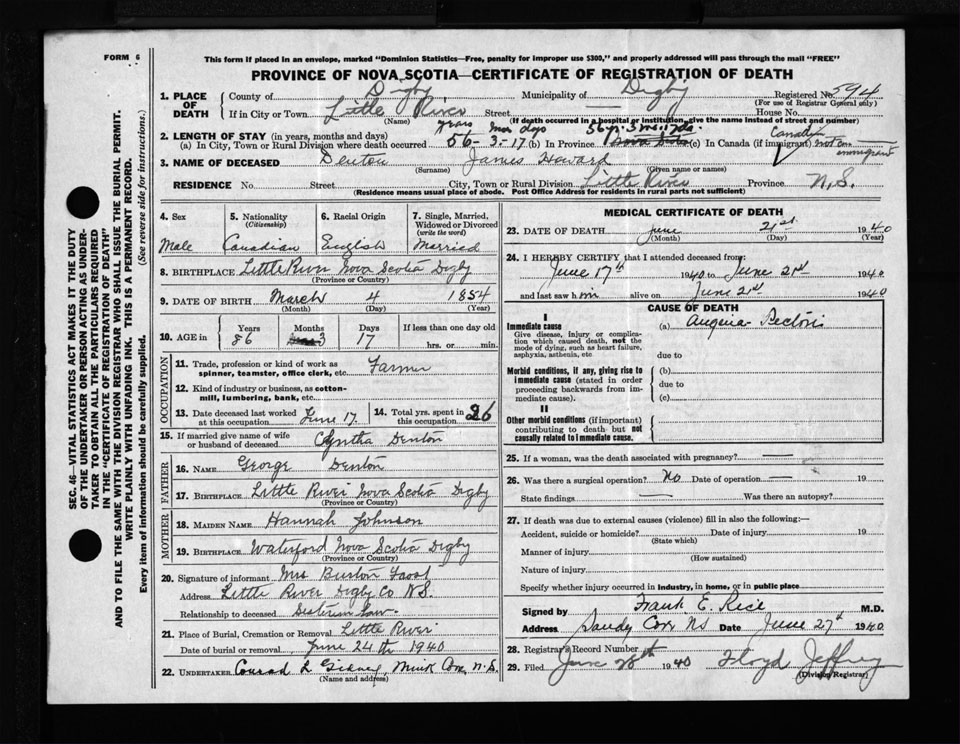 FORM 6
This form if placed in an envelope, marked "Dominion Statistics—Free, penalty for improper use $300," and properly addressed will pass through the mail "FREE"
PROVINCE OF NOVA SCOTIA—CERTIFICATE OF REGISTRATION OF DEATH
1. PLACE OF DEATH
County of Digby Municipality of Digby Registered No. 594
(For use of Registrar General only)
If in City or Town Little River Street House No.
(Name) (If death occurred in a hospital or institution, give the name instead of street and number)
2. LENGTH OF STAY (in years, months and days)
years mos dys 56 yr. 3 ms. 17 ds. Canadian
(a) In City, Town or Rural Division where death occurred 56-3-17 (b) In Province Nova Scotia (c) In Canada (if immigrant) not an immigrant
3. NAME OF DECEASED Denton James Howard
(Surname) (Given name or names)
RESIDENCE No. Street City, Town or Rural Division Little River Province N.S.
(Residence means usual place of abode. Post Office Address for residents in rural parts not sufficient)
4. Sex
Male
5. Nationality
(Citizenship)
Canadian
6. Racial Origin
English
7. Single, Married, Widowed or Divorced
(write the word)
Married
8. BIRTHPLACE Little River Nova Scotia Digby
(Province or Country)
9. DATE OF BIRTH March 4 1854
(Month) (Day) (Year)
10. AGE in
Years Months Days If less than one day old
86 3 17 hrs. or min.
OCCUPATION
11. Trade, profession or kind of work as spinner, teamster, office clerk, etc. Farmer
12. Kind of industry or business, as cotton-mill, lumbering, bank, etc.
13. Date deceased last worked at this occupation June 17
14. Total yrs. spent in this occupation 26
15. If married give name of wife or husband of deceased Cyntha Denton
FATHER
16. NAME George Denton
17. BIRTHPLACE Little River Nova Scotia Digby
(Province or Country)
MOTHER
18. MAIDEN NAME Hannah Johnson
19. BIRTHPLACE Waterford Nova Scotia Digby
(Province or Country)
20. Signature of informant Mrs Burton Frost
Address Little River Digby Co N.S.
Relationship to deceased Sister in Law
21. Place of Burial, Cremation or Removal Little River
Date of burial or removal June 24th 1940
22. UNDERTAKER Conrad L Gidney, Mink Cove, N.S.
(Name and address)
MEDICAL CERTIFICATE OF DEATH
23. DATE OF DEATH June 21st. 1940
(Month) (Day) (Year)
24. I HEREBY CERTIFY that I attended deceased from:
June 17th 1940 to June 21st 1940
and last saw him alive on June 21st 1940
CAUSE OF DEATH
I
Immediate cause
Give disease, injury or complication which caused death, not the mode of dying, such as heart failure, asphyxia, asthenia, etc
(a) Angina Pectoris
due to
Morbid conditions, if any, giving rise to immediate cause (stated in order proceeding backwards from immediate cause).
(b)
due to
(c)
II
Other morbid conditions (if important) contributing to death but not causally related to immediate cause.
25. If a woman, was the death associated with pregnancy?
26. Was there a surgical operation? No Date of operation 19
State findings Was there an autopsy?
27. If death was due to external causes (violence) fill in also the following:—
Accident, suicide or homicide? Date of injury 19
(State which)
Manner of injury
(How sustained)
Nature of injury
Specify whether injury occurred in industry, in home, or in public place
Signed by Frank E. Rice M.D.
Address Sandy Cove NS Date June 27th 1940
28. Registrar's Record Number
29. Filed June 28th 1940 Floyd Jeffrey
(Division Registrar)
SEC. 46—VITAL STATISTICS ACT MAKES IT THE DUTY
OF THE UNDERTAKER OR PERSON ACTING AS UNDER-
TAKER TO OBTAIN ALL THE PARTICULARS REQUIRED
IN THE "CERTIFICATE OF REGISTRATION OF DEATH"
AND TO FILE THE SAME WITH THE DIVISION REGISTRAR WHO SHALL ISSUE THE BURIAL PERMIT.
WRITE PLAINLY WITH UNFADING INK. THIS IS A PERMANENT RECORD.
Every item of information should be carefully supplied. (See reverse side for instructions.)